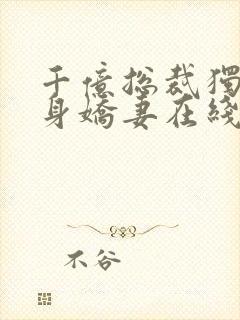 千億總裁獨
身嬌妻在綫
不谷